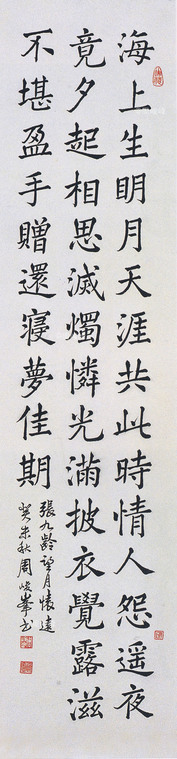 海上生明月天涯共此時情人怨遥夜
竟夕起相思滅燭憐光滿披衣覺露滋
不堪盈手贈還寢夢佳期
張九齡望月懷遠
癸未秋周峻峯书